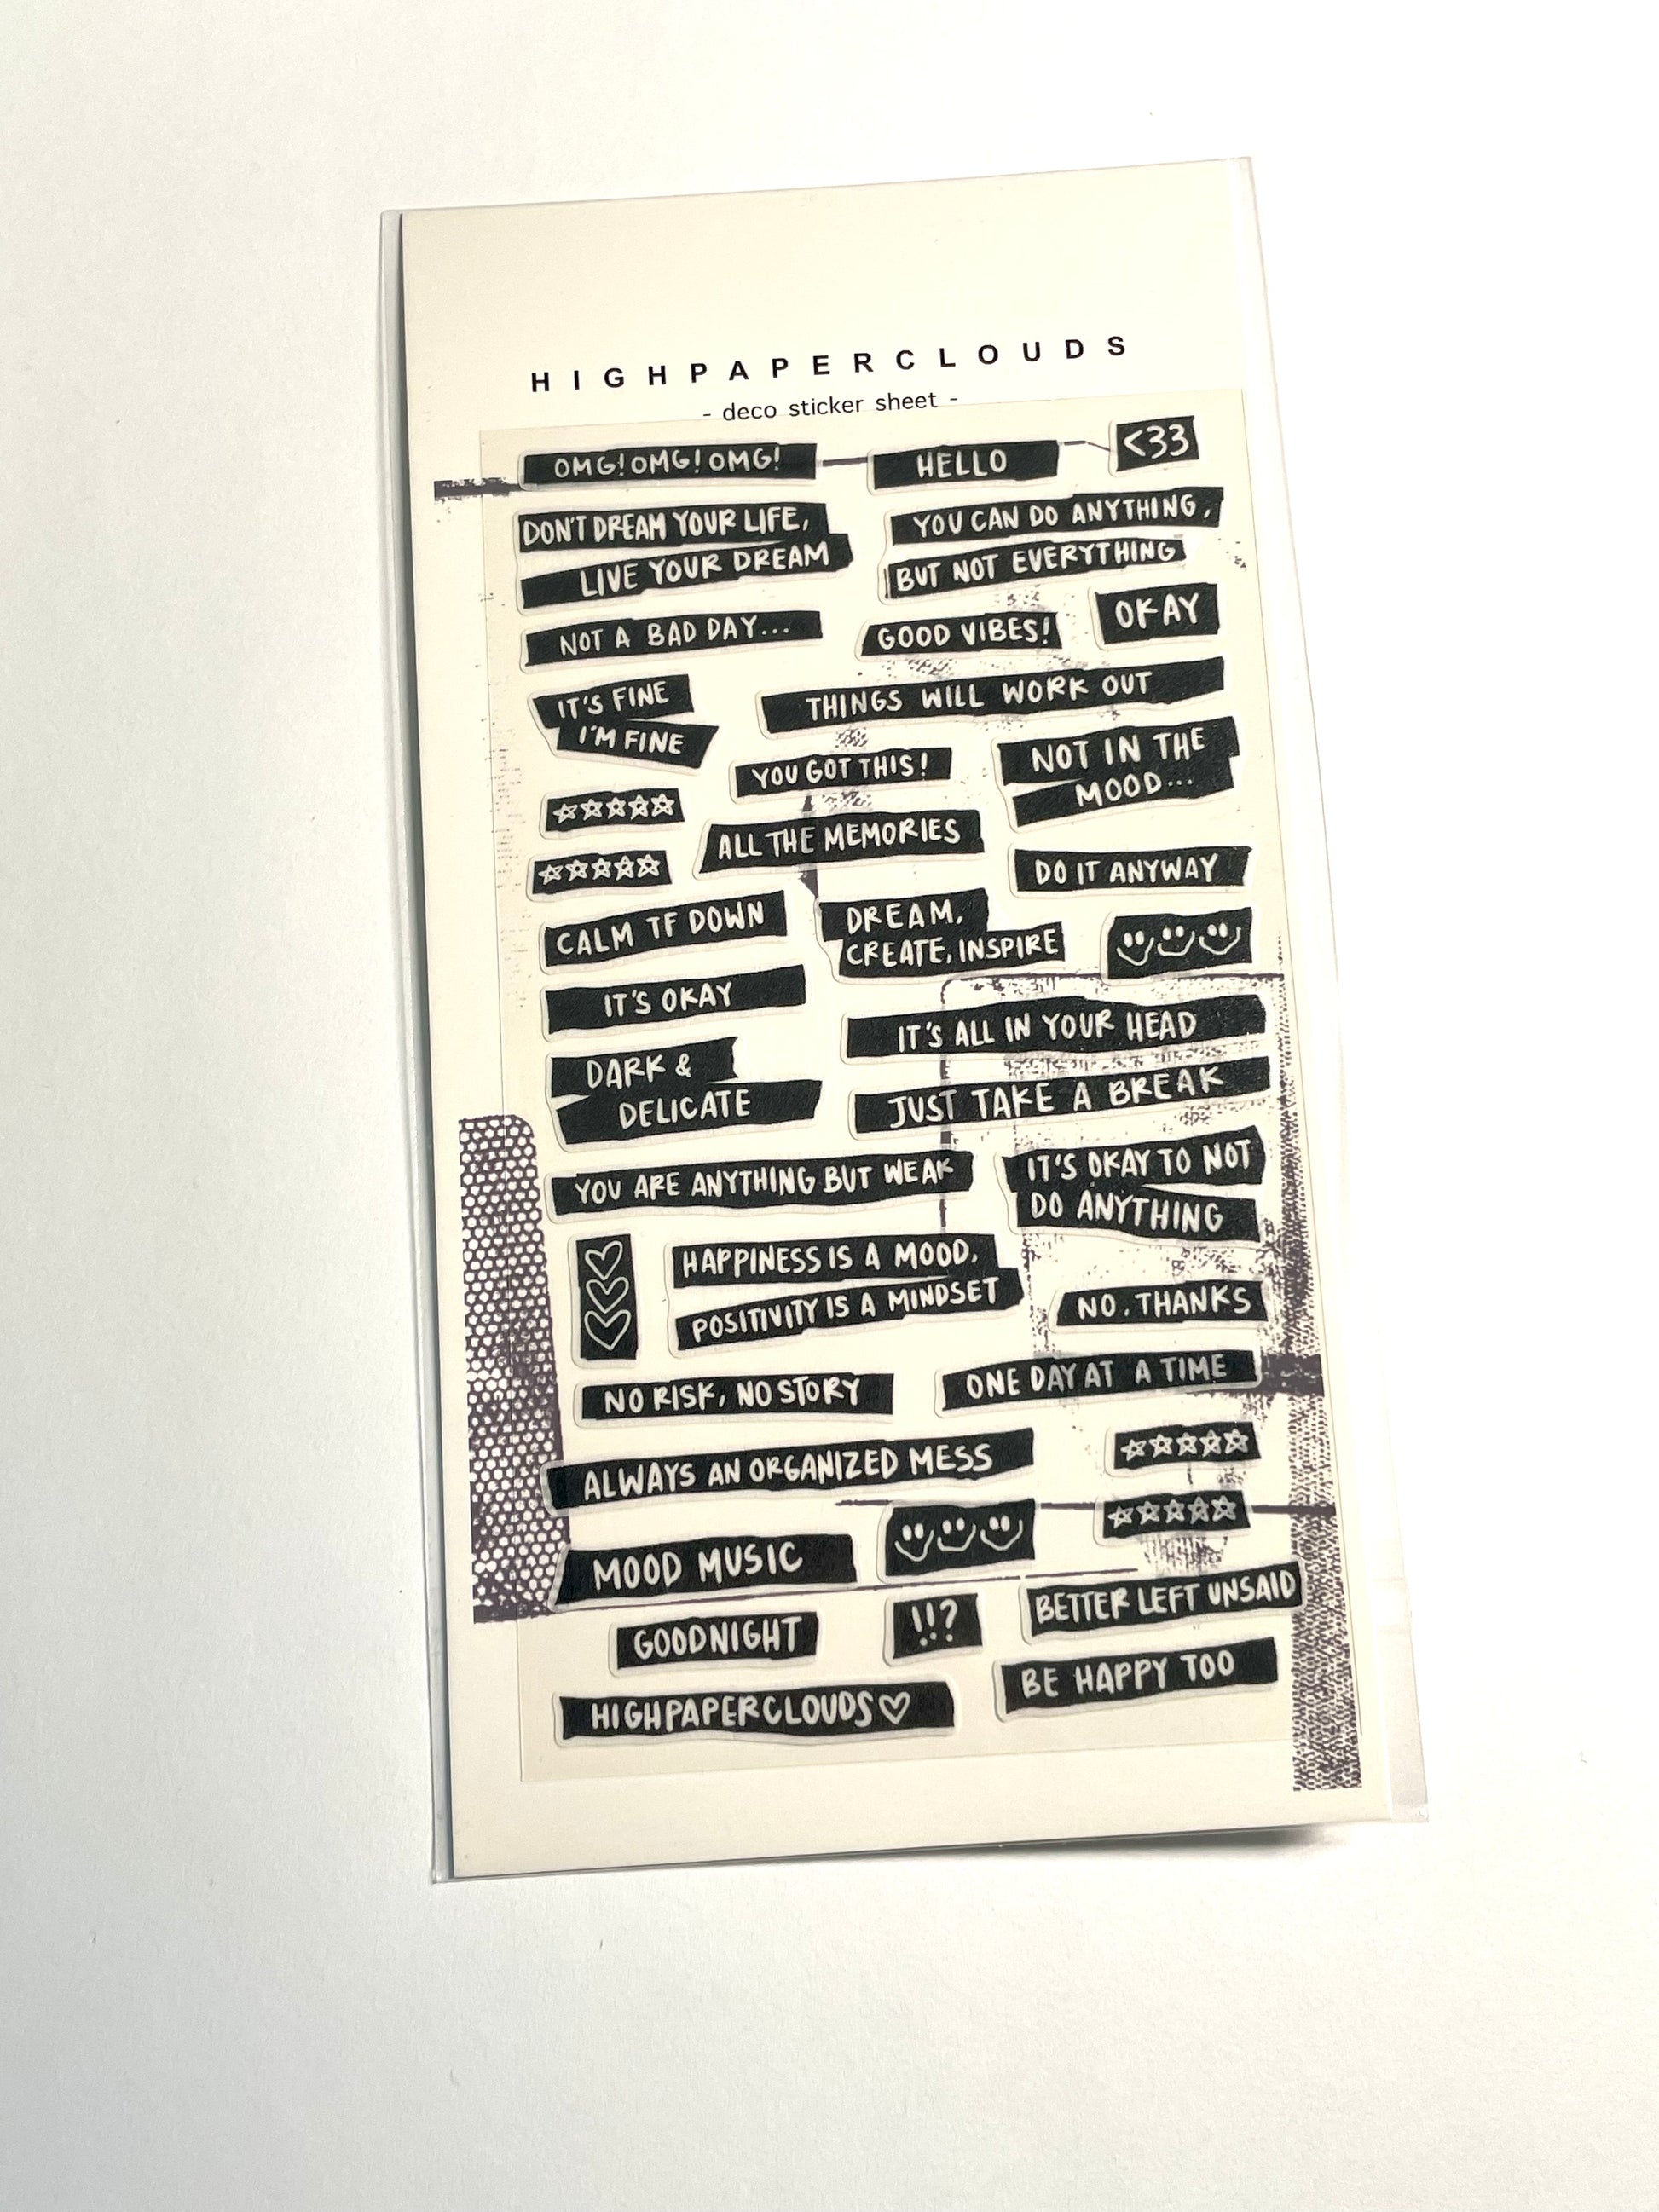 HIGHPAPERCLOUDS
- deco sticker sheet -
OMG! OMG! OMG!
HELLO
<33
DON'T DREAM YOUR LIFE,
LIVE YOUR DREAM
YOU CAN DO ANYTHING,
BUT NOT EVERYTHING
NOT A BAD DAY...
GOOD VIBES!
OKAY
IT'S FINE
I'M FINE
THINGS WILL WORK OUT
YOU GOT THIS!
NOT IN THE
MOOD...
ALL THE MEMORIES
DO IT ANYWAY
CALM TF DOWN
DREAM,
CREATE, INSPIRE
IT'S OKAY
IT'S ALL IN YOUR HEAD
DARK &
DELICATE
JUST TAKE A BREAK
YOU ARE ANYTHING BUT WEAK
IT'S OKAY TO NOT
DO ANYTHING
HAPPINESS IS A MOOD,
POSITIVITY IS A MINDSET
NO, THANKS
NO RISK, NO STORY
ONE DAY AT A TIME
ALWAYS AN ORGANIZED MESS
MOOD MUSIC
BETTER LEFT UNSAID
GOODNIGHT
!!?
BE HAPPY TOO
HIGHPAPERCLOUDS♡